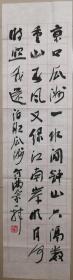 京口瓜洲一水间钟山只隔数
重山春风又绿江南岸明月何
时照我还泊船瓜洲